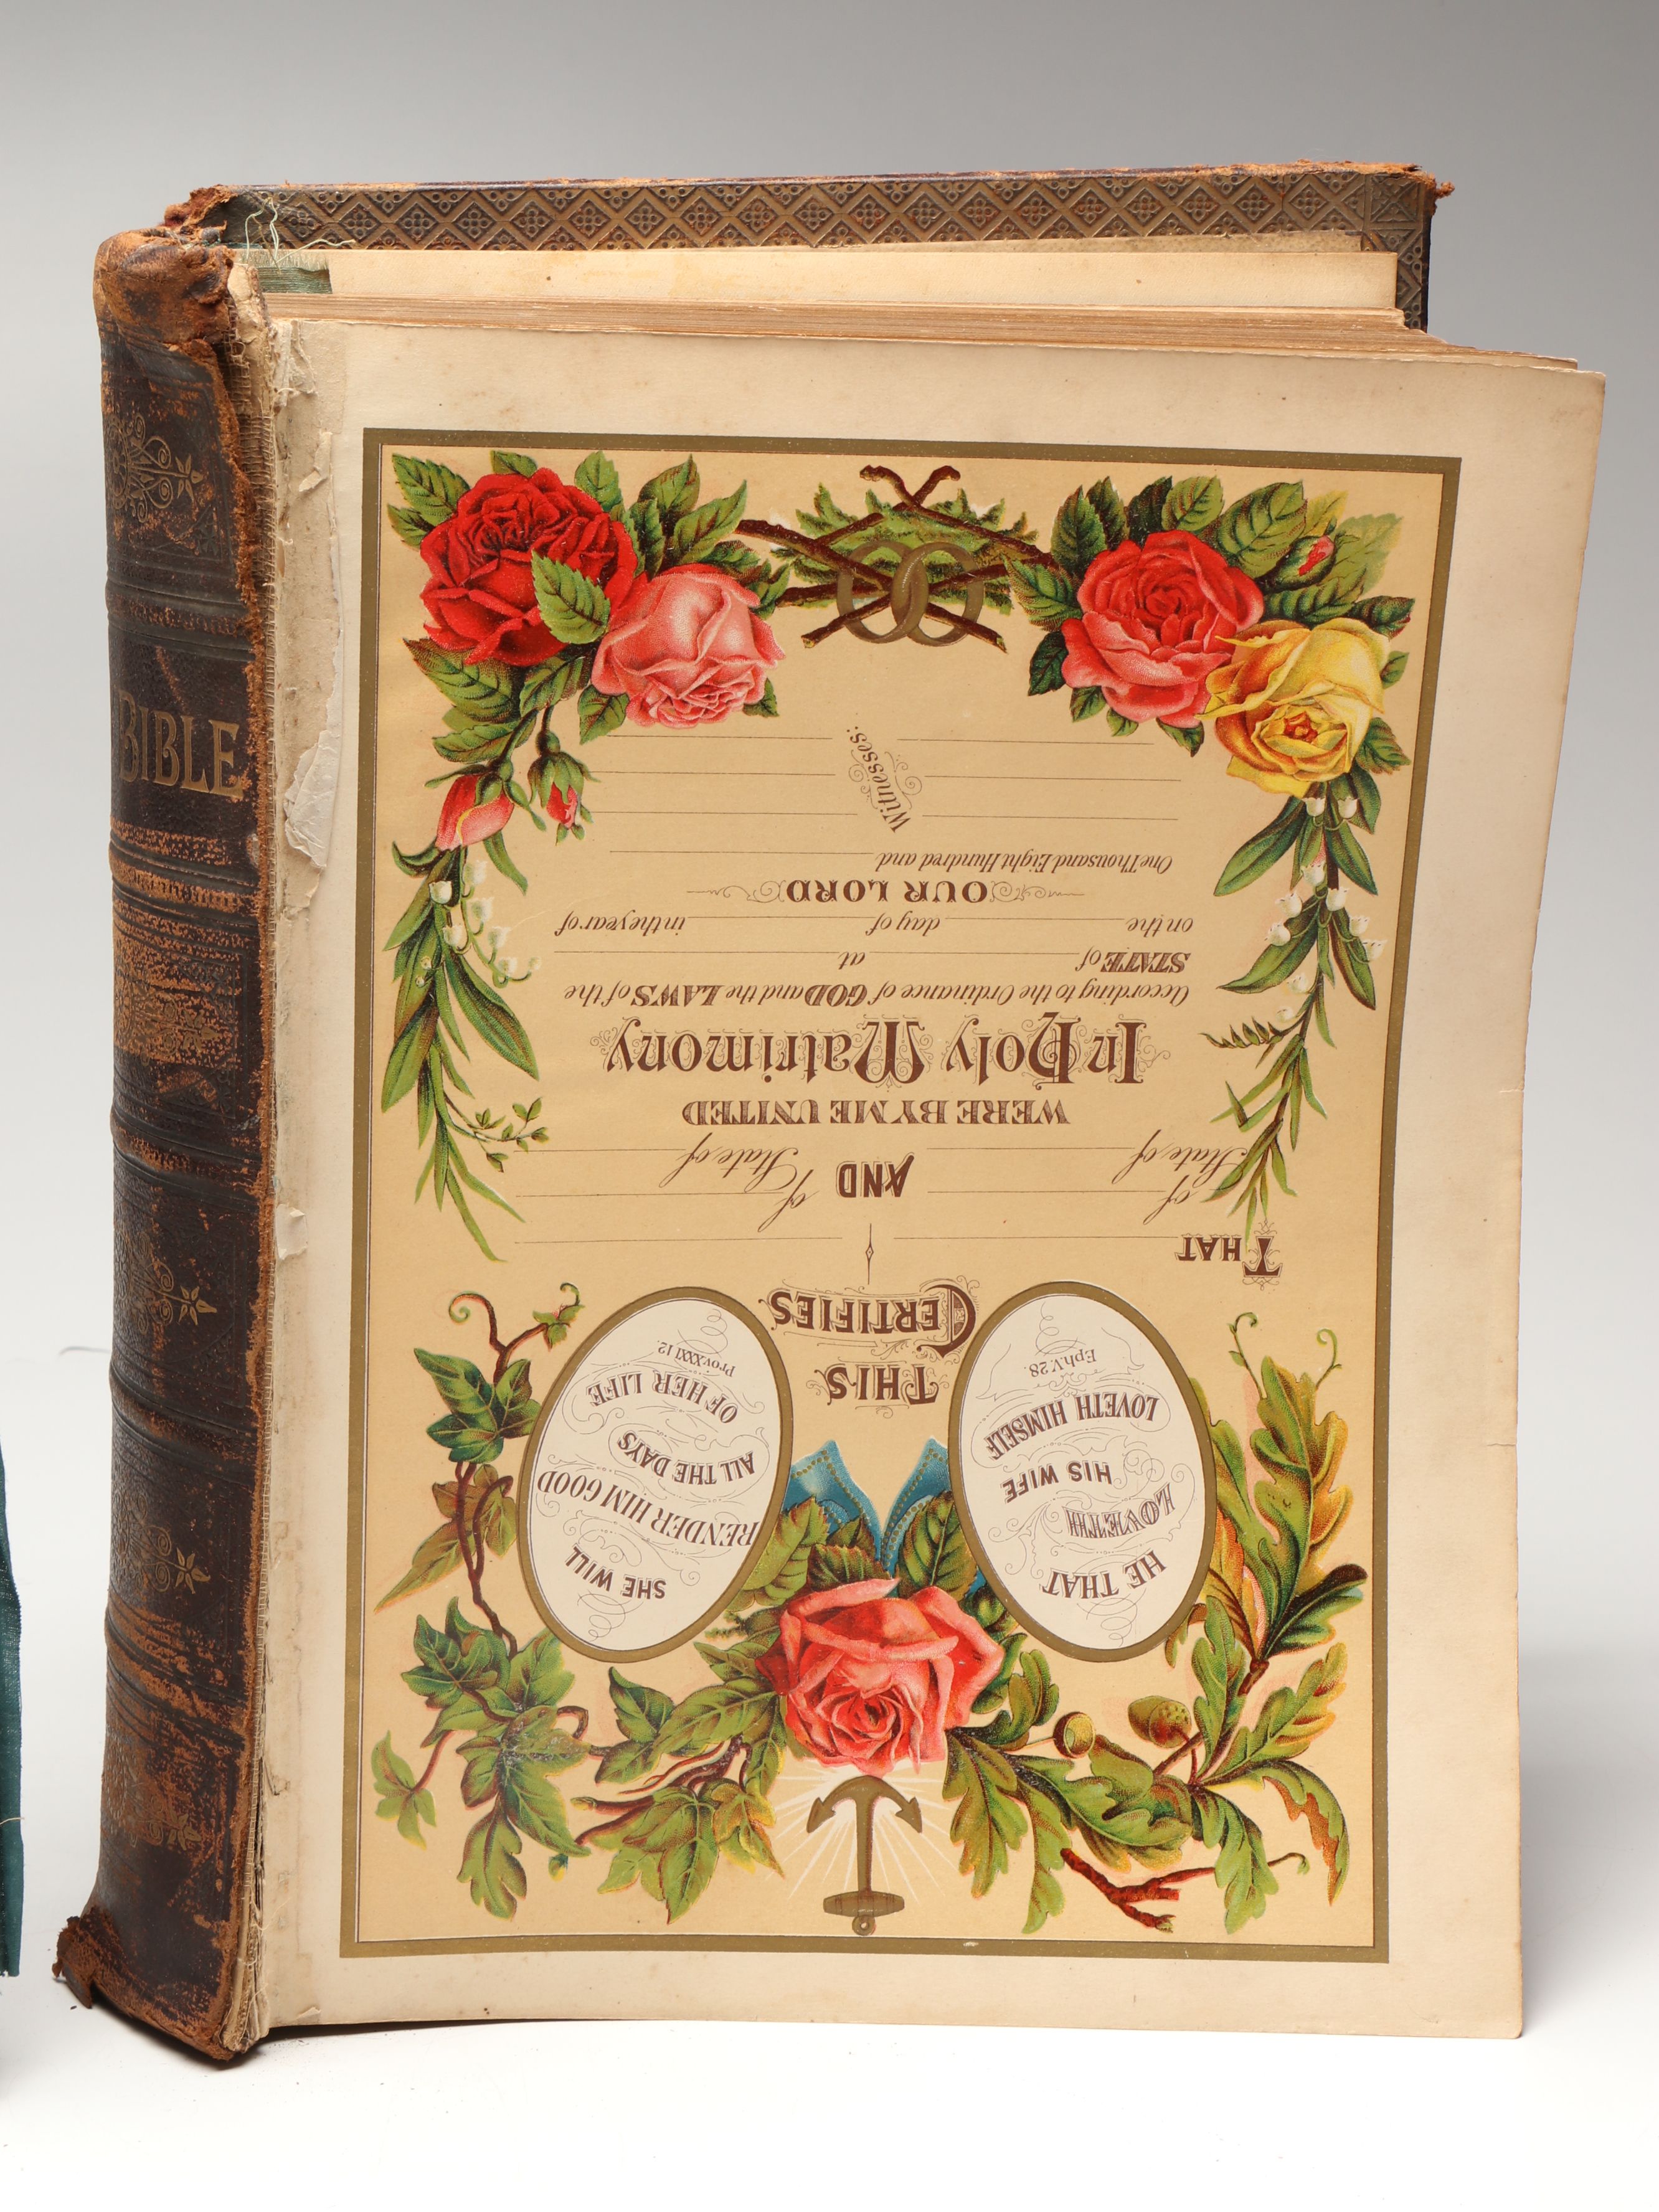 BIBLE
HE THAT
LOVETH
HIS WIFE
LOVETH HIMSELF
Eph.V.28.
SHE WILL
RENDER HIM GOOD
ALL THE DAYS
OF HER LIFE
Prov.XXXI.12.
THIS
CERTIFIES
THAT
of of
State of AND State of
WERE BY ME UNITED
In Holy Matrimony
According to the Ordinance of GOD and the LAWS of the
STATE of at
on the day of in the year of
OUR LORD
One Thousand Eight Hundred and
Witnesses: